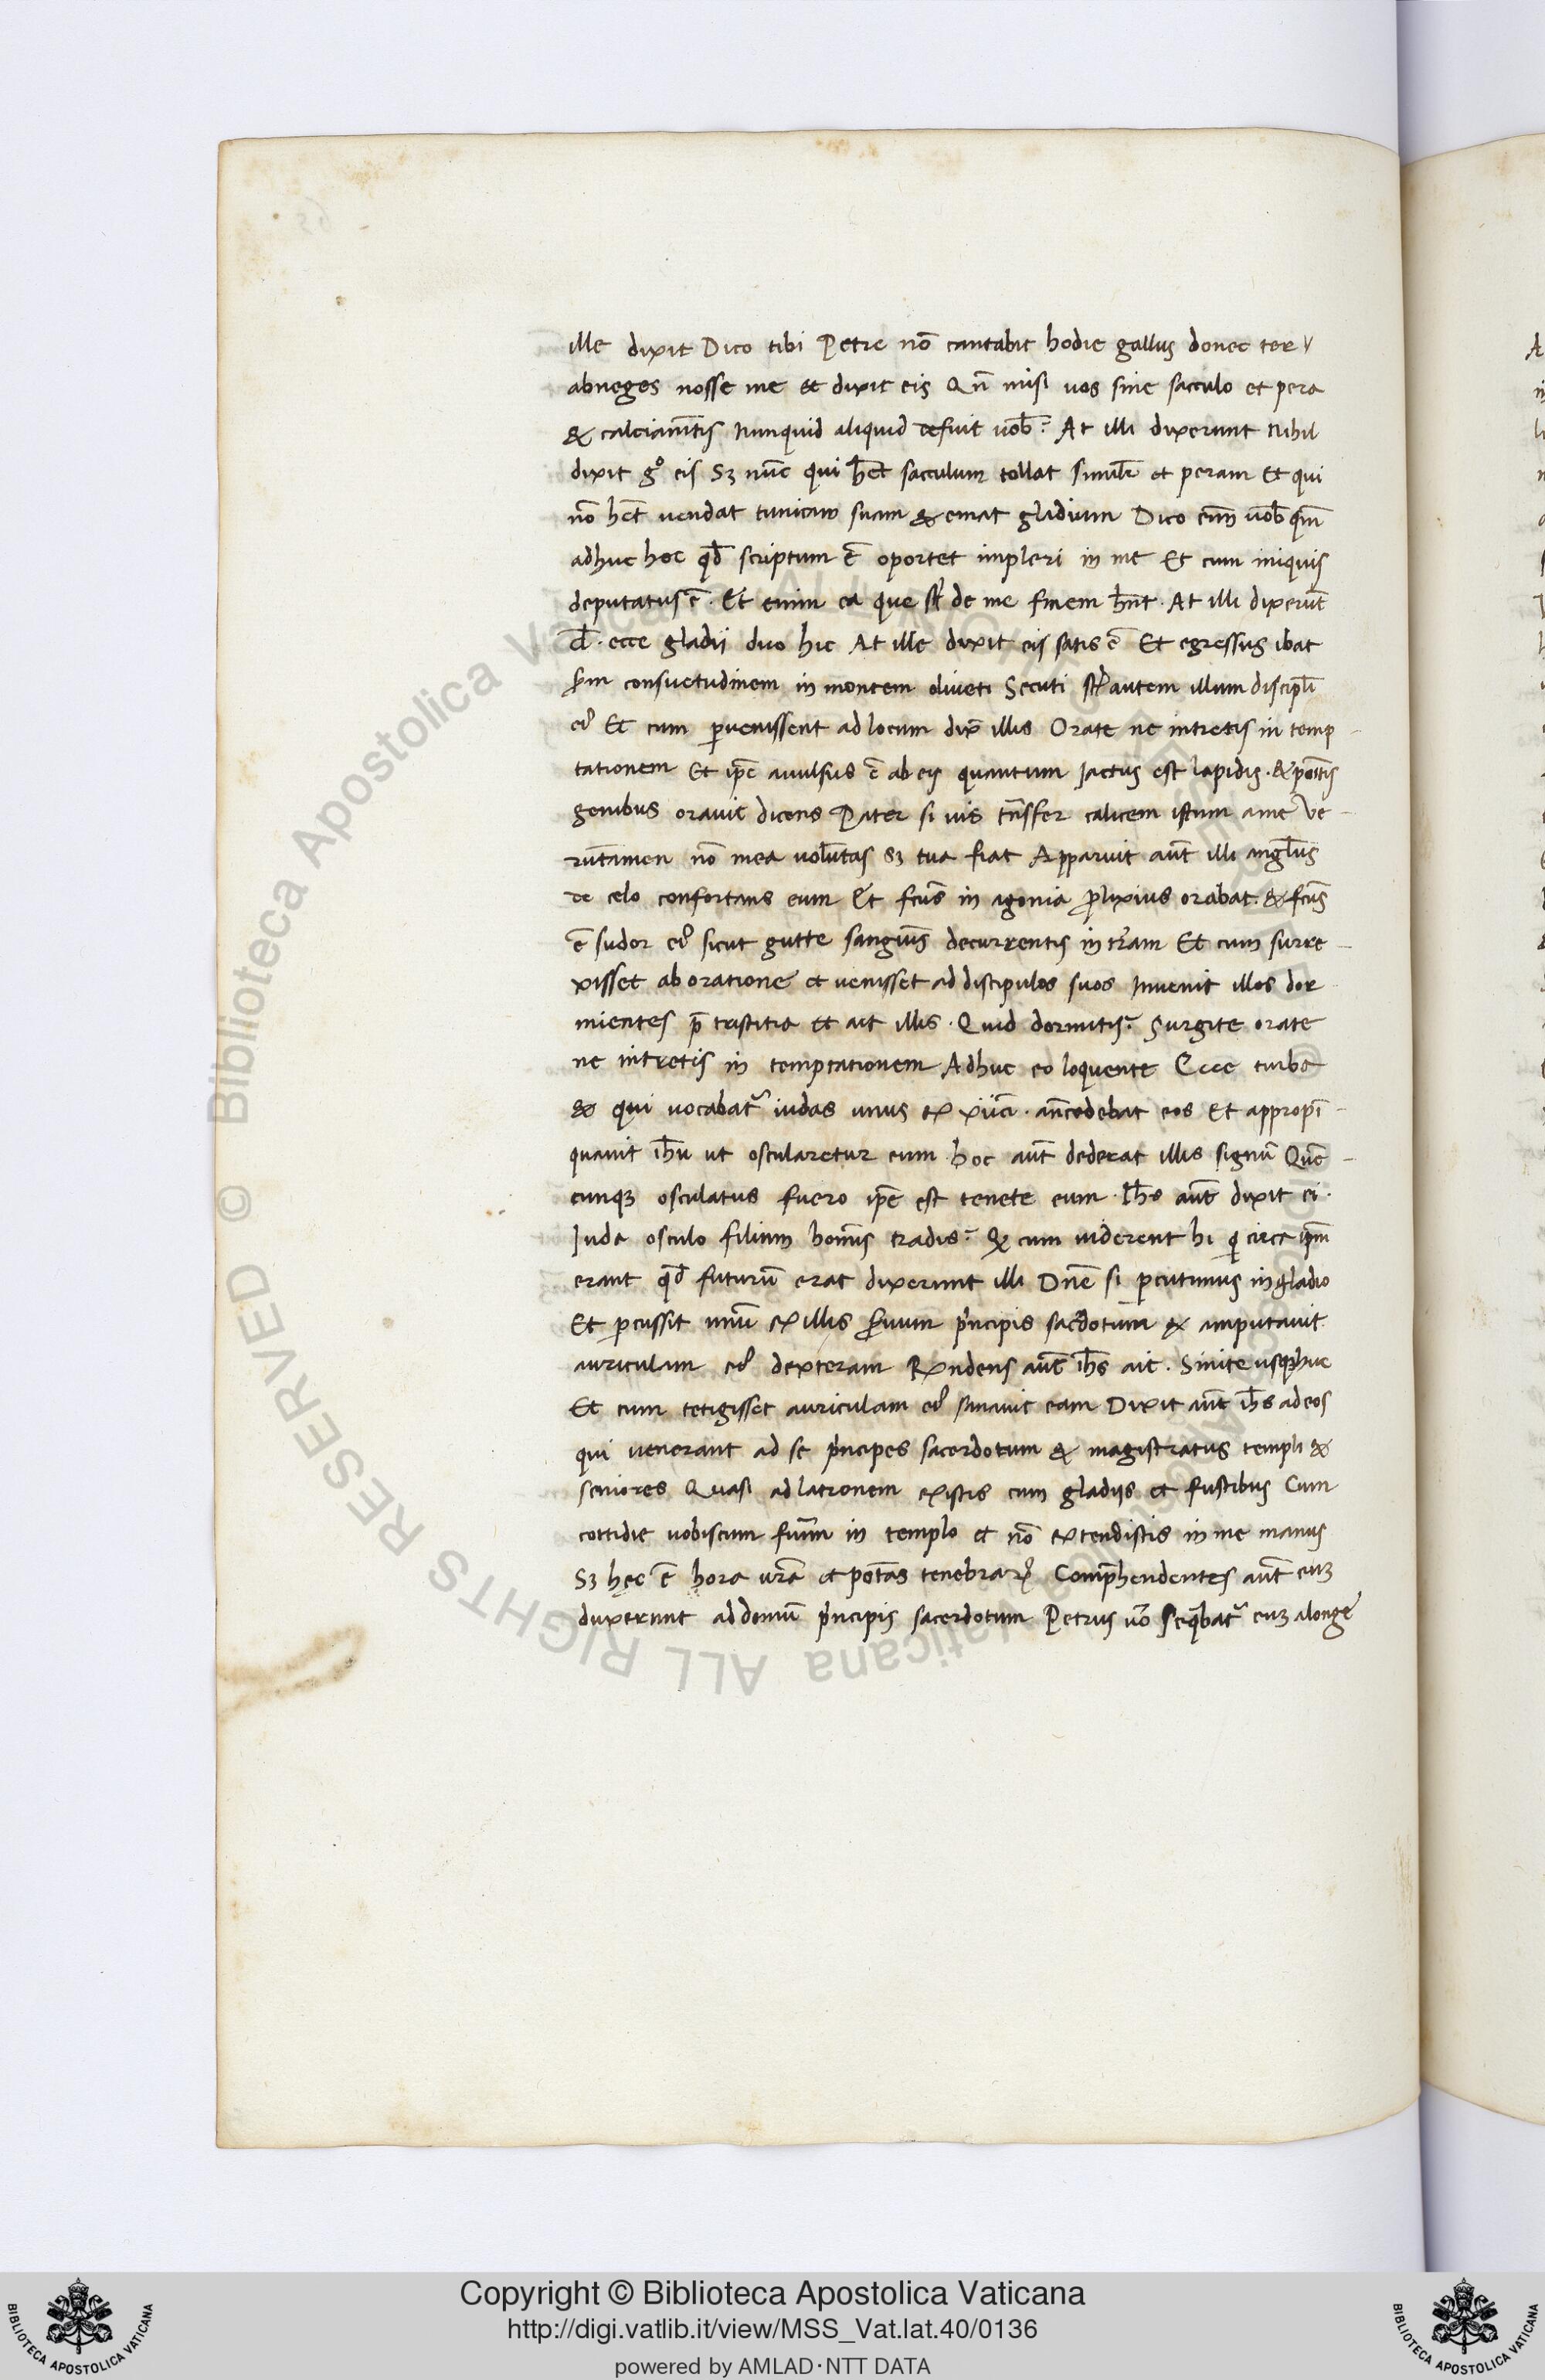 ille dixit Dico tibi Petre nō cantabit hodie gallus donec ter
abneges nosse me et dixit eis Qn̄ misi uos sine sacculo et pera
& calciam̄tis Nunquid aliquid defuit uob̄? At illi dixerunt Nihil
dixit gº eis Sꝫ nūc qui h̄et sacculum tollat simil̄r et peram Et qui
nō h̄et uendat tunicam suam & emat gladium Dico eni̅m uob̄ qm̄
adhuc hoc qd̄ scriptum ē oportet impleri in me Et cum iniquis
deputatus ē. Et enim ea que st̄ de me finem h̄nt. At illi dixerūt
d̄. ecce gladij duo hic At ille dixit eis satis ē Et egressus ibat
s̄m consuetudinem in montem oliueti Secuti st̄ autem illum discipl̄i
eꝰ Et cum ꝑuenissent ad locum dix̄ illis Orate ne intretis in temp
tationem Et ip̄e auulsus ē ab eis quantum Jactus est lapidis. & poīt̄s
genibus orauit dicens Pater si uis tn̄sfer calicem istum a me Ve
rūtamen nō mea uolūtas sꝫ tua fiat Apparuit aūt illi angl̄us
de celo confortans eum Et fc̄us in agonia ꝓlixius orabat. & fc̄us
ē sudor eꝰ sicut gutte sanguīs decurrentis in tr̄am Et cum surre
xisset ab oratione et uenisset ad discipulos suos Inuenit illos dor
mientes p̄ tristitia et ait illis. Quid dormitis? Surgite orate
ne intretis in temptationem Adhuc eo loquente Ecce turba
& qui uocabat᷑ iudas unus ex xijci. an̄cedebat eos Et appropī
quauit ih̄u ut oscularetur eum hoc aūt dederat illis signū Quē
cunqꝫ osculatus fuero ip̄e est tenete eum. Ih̄s aūt dixit ei.
Juda osculo filium homīs tradis? & cum uiderent hi q̄ circa ip̄m
erant qd̄ futurū erat dixerunt illi Dn̄e si ꝑcutimus in gladio
Et ꝑcussit unū ex illis s̄uum pͥncipis sac̄dotum & amputauit
auriculam eꝰ dexteram Rn̄dens aūt ih̄s ait. Sinite usqꝫ huc
Et cum tetigisset auriculam eꝰ sanauit eam Dixit aūt ih̄s ad eos
qui uenerant ad se pͥncipes sacerdotum & magistratus templi &
seniores Quasi ad latronem existis cum gladijs et fustibus Cum
cottidie uobiscum fuīm in templo et nō extendistis in me manus
Sꝫ hec ē hora ur̄a et potās tenebraꝝ Comp̄hendentes aūt euꝫ
duxerunt ad domū pͥncipis sacerdotum Petrus uō seq̄batᷣ euꝫ alonge
Copyright © Biblioteca Apostolica Vaticana
http://digi.vatlib.it/view/MSS_Vat.lat.40/0136
powered by AMLAD·NTT DATA
BIBLIOTECA APOSTOLICA VATICANA
BIBLIOTECA APOSTOLICA VATICANA
© Biblioteca Apostolica Vaticana ALL RIGHTS RESERVED